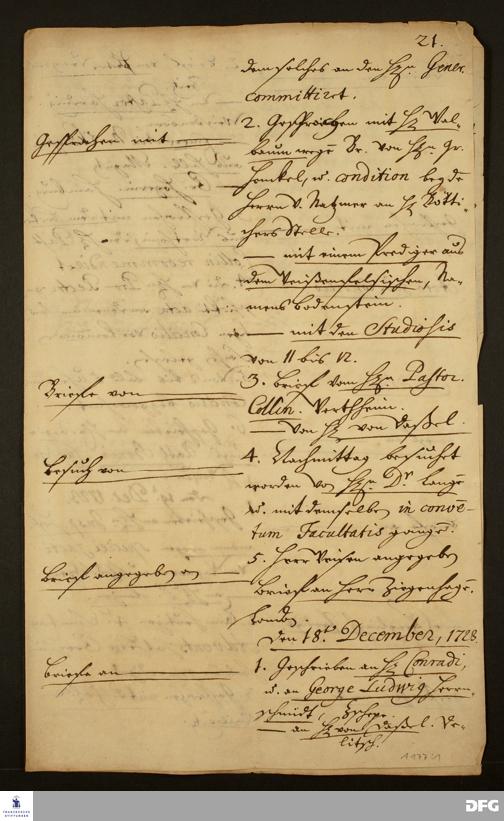 21.
dem solches an den Hn. Gener.
committiret.
Gesprochen mit
2. Gesprochen mit H. Wal-
baum wegen Br. von Hn. Gr.
Henkel, u. condition bey de
Herrn v. Natzmer an H. Bötti-
chers Stelle.
— mit einem Prediger aus
dem Weißenfelsischen, Na-
mens Bodenstein.
— mit den Studiosis
von 11 bis 12.
Briefe von
3. Brief vom Hn. Pastor.
Collin. Wertheim.
— von H. von Daßel.
Besuch von
4. Nachmittag besuchet
worden von Hn. Dr Lange
u. mit demselben in conven-
tum Facultatis gangen.
Brief angegeben an
5. Herr angegeben
Brief an Herr Ziegenhagen.
London.
Den 18t. December, 1728
Briefe an
1. Geschrieben an H. Conradi,
u. an George Ludwig Herrn-
schmidt,
— an H. von Daßel. De-
litsch.
FRANCKESCHE
STIFTUNGEN
DFG